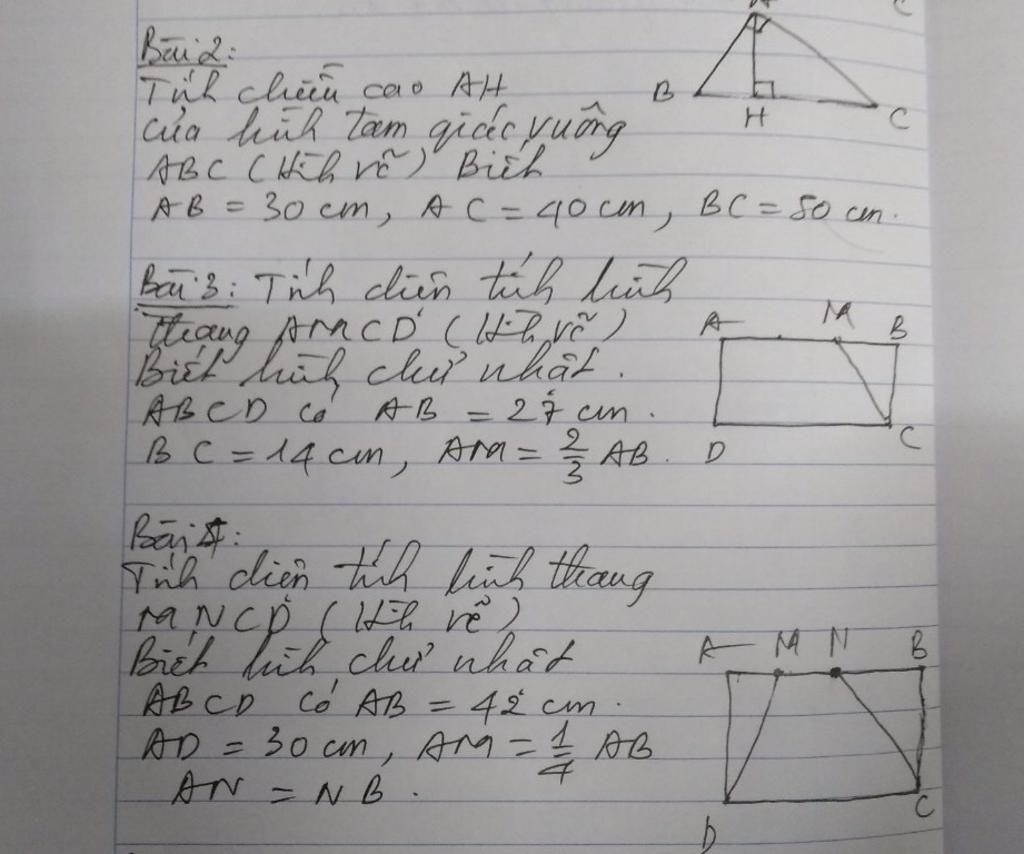 Bài 2:
Tính chiều cao AH
của hình tam giác vuông
ABC (Hình vẽ) Biết
AB = 30 cm, AC = 40 cm, BC = 50 cm.
A
B
H
C
Bài 3: Tính diện tích hình
thang AMCD (Hình vẽ)
Biết hình chữ nhật.
ABCD có AB = 27 cm.
BC = 14 cm, AM = 2/3 AB.
A M B
D C
Bài 4:
Tính diện tích hình thang
MNCD (Hình vẽ)
Biết hình chữ nhật
ABCD có AB = 42 cm.
AD = 30 cm, AM = 1/4 AB
AN = NB.
A M N B
D C